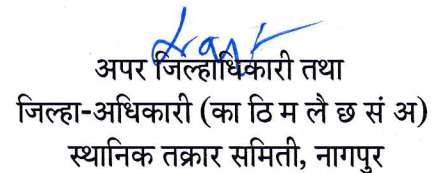 अपर जिल्हाधिकारी तथा
जिल्हा-अधिकारी (का ठि म लै छ सं अ)
स्थानिक तक्रार समिती, नागपुर